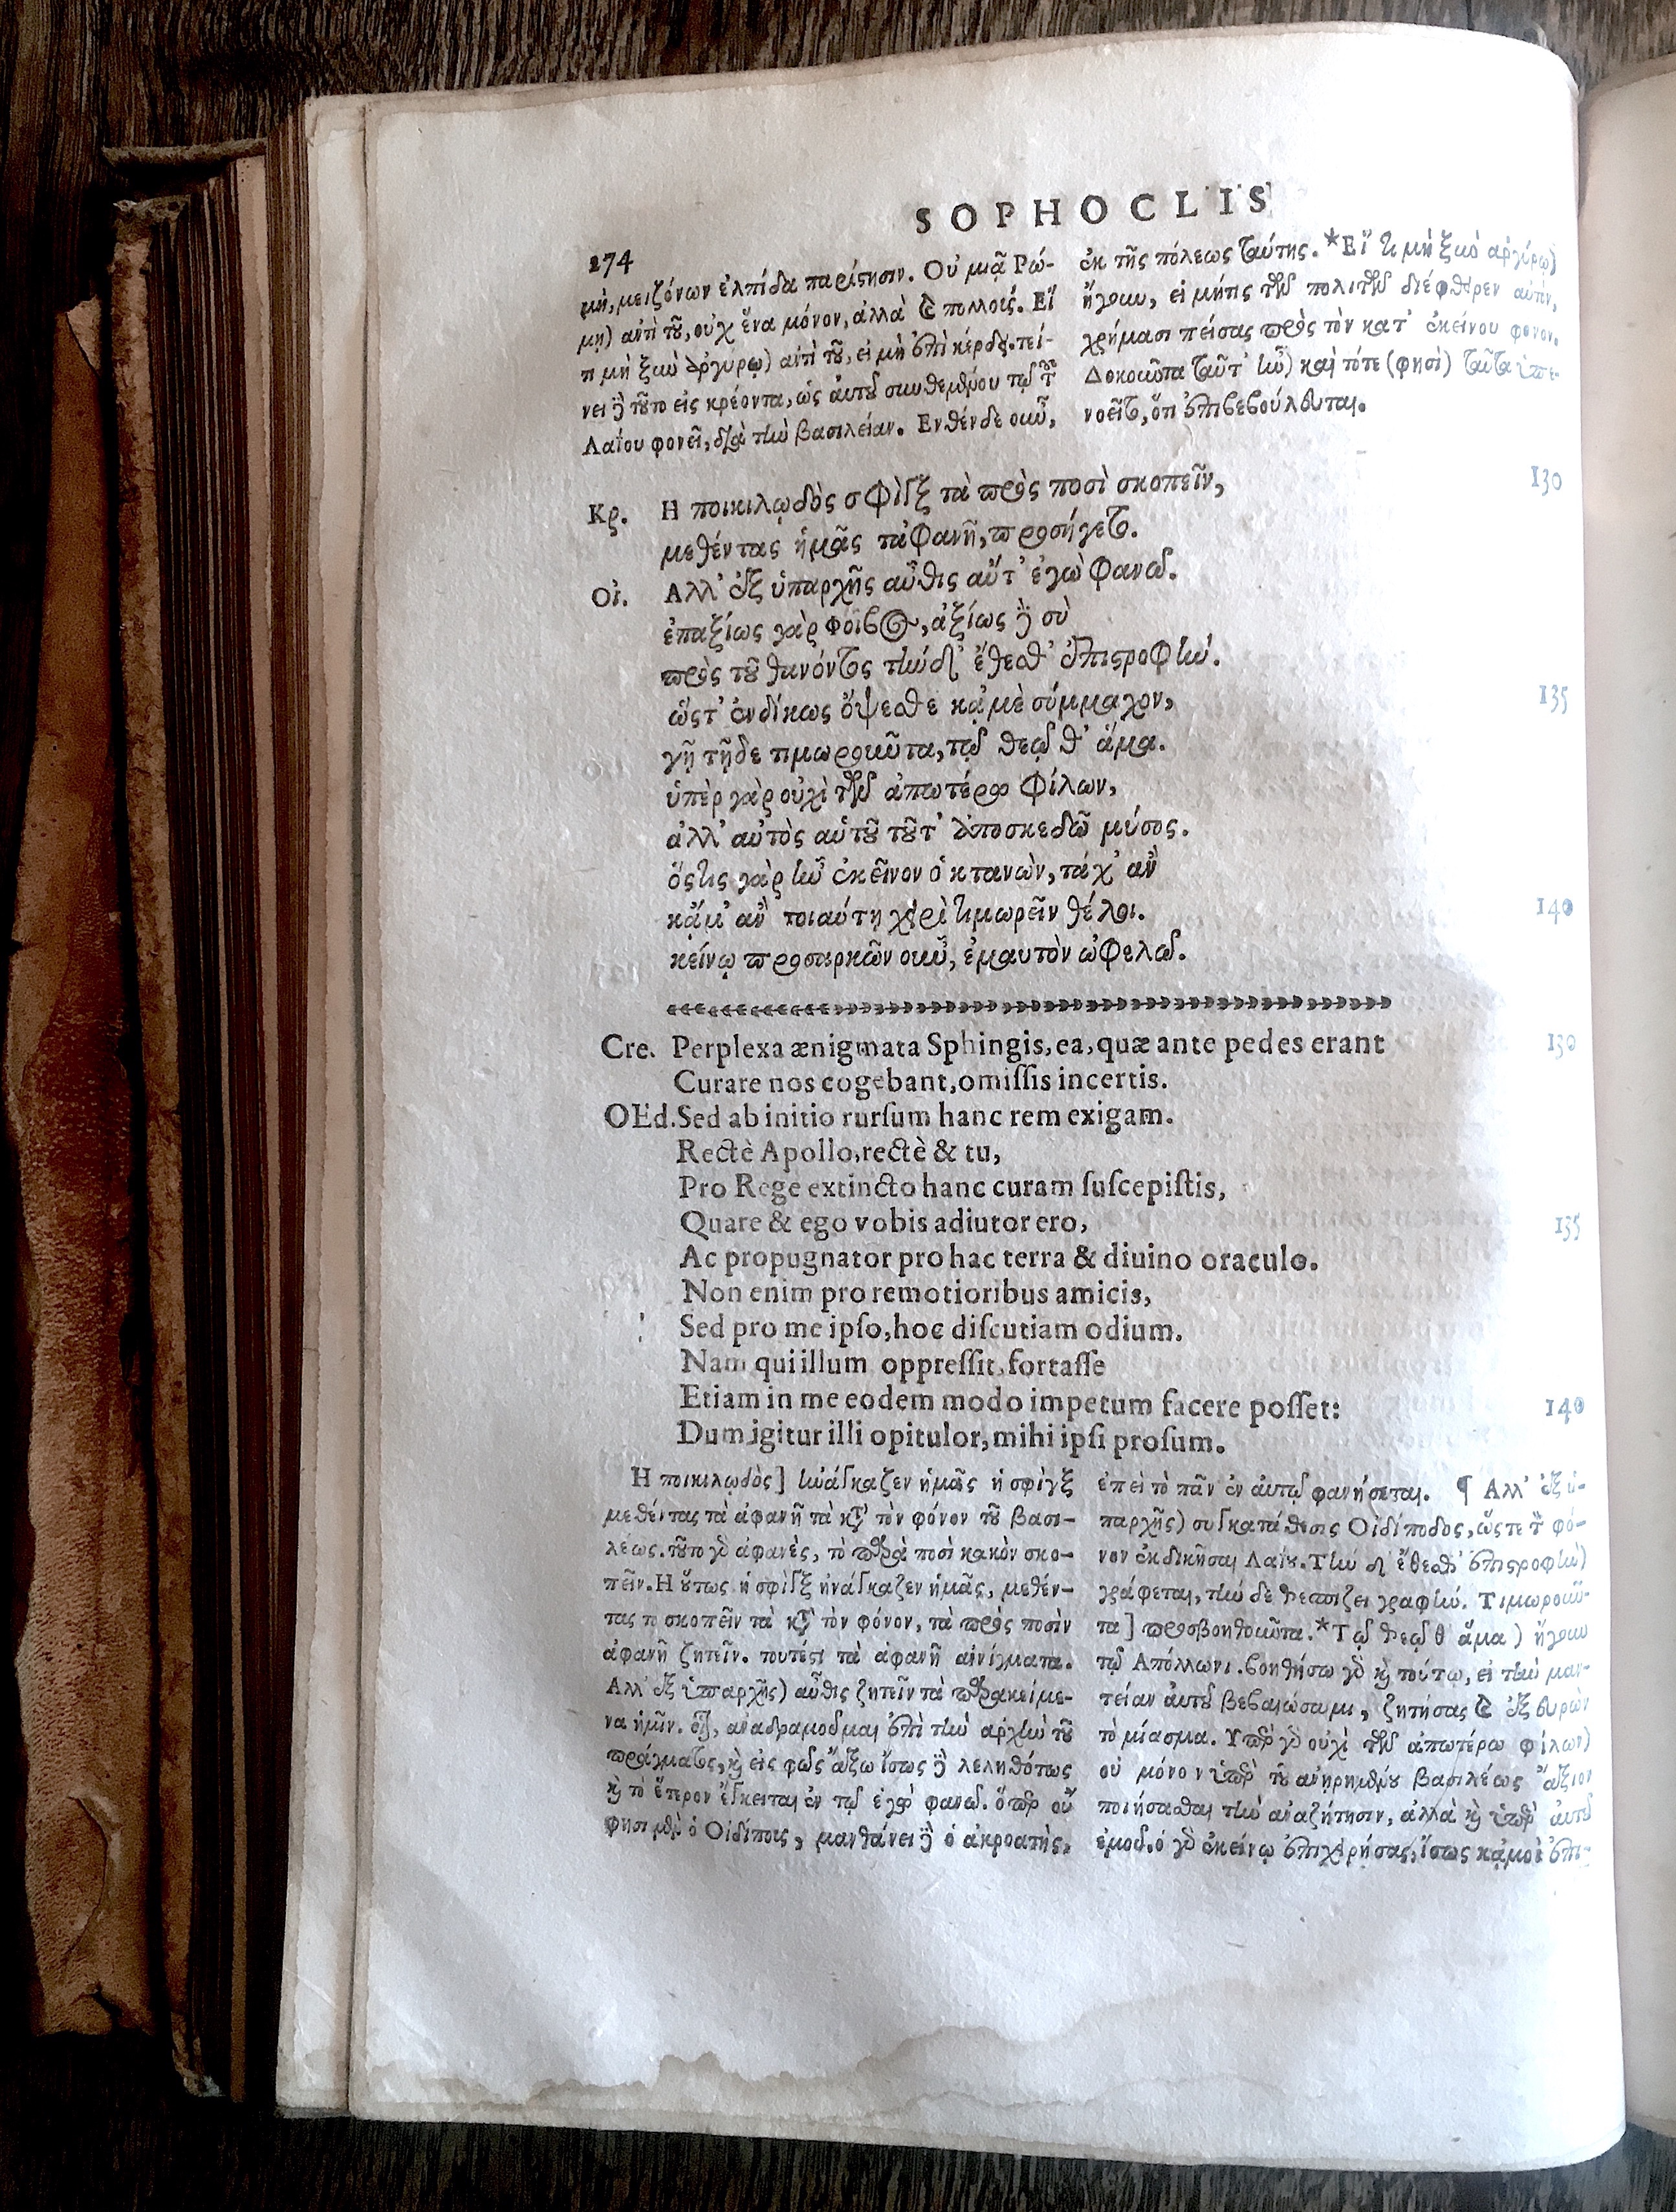 SOPHOCLIS
274
μη, μειζόνων ἐλπίδα παρίστησιν. Οὐ μιᾷ Ρώ-
μῃ) αὐτὶ τοῦ, οὐχ ἕνα μόνον, ἀλλὰ καὶ πολλοῖς. Εἴ
τι μὴ ξὺν ἀργύρῳ) αὐτὶ τοῦ, εἰ μὴ ἐπὶ κέρδει. τεί-
νει δὲ τοῦτο εἰς κρέοντα, ὡς αὐτοῦ συνθεμένου τῷ τοῦ
Λαΐου φονεῖ, διὰ τὴν βασιλείαν. Ενθένδε οὖν,
ἐκ τῆς πόλεως ταύτης. *Εἴ τι μὴ ξὺν ἀργύρῳ)
ἤγουν, εἰ μήτις τῶν πολιτῶν διέφθειρεν αὐτὸν,
χρήμασι πείσας πρὸς τὸν κατ' ἐκείνου φόνον.
Δοκοῦντα ταῦτ' ἦν) καὶ τότε (φησὶ) ταῦτα ὑπε-
νοεῖτο, ὅτι ἐπιβεβούλευται.
Κρ. Η ποικιλῳδὸς σφὶγξ τὰ πρὸς ποσὶ σκοπεῖν, 130
μεθέντας ἡμᾶς τἀφανῆ, προσήγετο.
Οἰ. Αλλ' ἐξ ὑπαρχῆς αὖθις αὔτ' ἐγὼ φανῶ.
ἐπαξίως γὰρ Φοῖβος, ἀξίως δὲ σὺ
πρὸς τοῦ θανόντος τήνδ' ἔθεσθ' ἐπιστροφήν.
ὥστ' ἐνδίκως ὄψεσθε κᾀμὲ σύμμαχον, 135
γῇ τῇδε τιμωροῦντα, τῷ θεῷ θ' ἅμα.
ὑπὲρ γὰρ οὐχὶ τῶν ἀπωτέρω φίλων,
ἀλλ' αὐτὸς αὑτοῦ τοῦτ' ἀποσκεδῶ μύσος.
ὅστις γὰρ ἦν ἐκεῖνον ὁ κτανὼν, τάχ' ἂν
κᾄμ' ἂν τοιαύτῃ χειρὶ τιμωρεῖν θέλοι. 140
κείνῳ προσαρκῶν οὖν, ἐμαυτὸν ὠφελῶ.
Cre. Perplexa ænigmata Sphingis, ea, quæ ante pedes erant 130
Curare nos cogebant, omiſſis incertis.
OEd. Sed ab initio rurſum hanc rem exigam.
Rectè Apollo, rectè & tu,
Pro Rege extincto hanc curam ſuſcepiſtis,
Quare & ego vobis adiutor ero, 135
Ac propugnator pro hac terra & diuino oraculo.
Non enim pro remotioribus amicis,
Sed pro me ipſo, hoc diſcutiam odium.
Nam qui illum oppreſſit, fortaſſe
Etiam in me eodem modo impetum facere poſſet: 140
Dum igitur illi opitulor, mihi ipſi proſum.
Η ποικιλῳδὸς] ἠνάγκαζεν ἡμᾶς ἡ σφὶγξ
μεθέντας τὰ ἀφανῆ τὰ κατὰ τὸν φόνον τοῦ βασι-
λέως. τοῦτο γὰρ ἀφανὲς, τὸ παρὰ ποσὶ κακὸν σκο-
πεῖν. Η οὕτως ἡ σφὶγξ ἠνάγκαζεν ἡμᾶς, μεθέν-
τας το σκοπεῖν τὰ κατὰ τὸν φόνον, τὰ πρὸς ποσὶν
ἀφανῆ ζητεῖν. τουτέστι τὰ ἀφανῆ αἰνίγματα.
Αλλ' ἐξ ὑπαρχῆς) αὖθις ζητεῖν τὰ παρακείμε-
να ἡμῖν. ἀναδραμοῦμαι ἐπὶ τὴν ἀρχὴν τοῦ
πράγματος, καὶ εἰς φῶς ἄξω ἴσως δὲ λεληθότως
καὶ τὸ ἕτερον ἔγκειται ἐν τῷ ἐγὼ φανῶ. ὅπερ οὐ
φησι μὲν ὁ Οἰδίπους, μανθάνει δὲ ὁ ἀκροατὴς,
ἐπεὶ τὸ πᾶν ἐν αὐτῷ φανήσεται. ¶ Αλλ' ἐξ ὑ-
παρχῆς) συγκατάθεσις Οἰδίποδος, ὥστε τὸν φό-
νον ἐκδικῆσαι Λαΐου. Τήν δ' ἔθεσθ' ἐπιστροφὴν)
γράφεται, τήν δε θεσπίζει γραφήν. Τιμωροῦν-
τα] προσβοηθοῦντα. *Τῷ θεῷ θ' ἅμα) ἤγουν
τῷ Απόλλωνι. βοηθήσω γὰρ καὶ τούτῳ, εἰ τὴν μαν-
τείαν αὐτοῦ βεβαιώσαιμι, ζητήσας καὶ ἐξευρὼν
τὸ μίασμα. Υπὲρ γὰρ οὐχὶ τῶν ἀπωτέρω φίλων)
οὐ μόνον ὑπὲρ τοῦ ἀνῃρημένου βασιλέως ἄξιον
ποιήσασθαι τὴν ἀναζήτησιν, ἀλλὰ καὶ ὑπὲρ αὐτοῦ
ἐμοῦ. ὁ γὰρ ἐκείνῳ ἐπιχειρήσας, ἴσως κᾀμοὶ ἐπι-